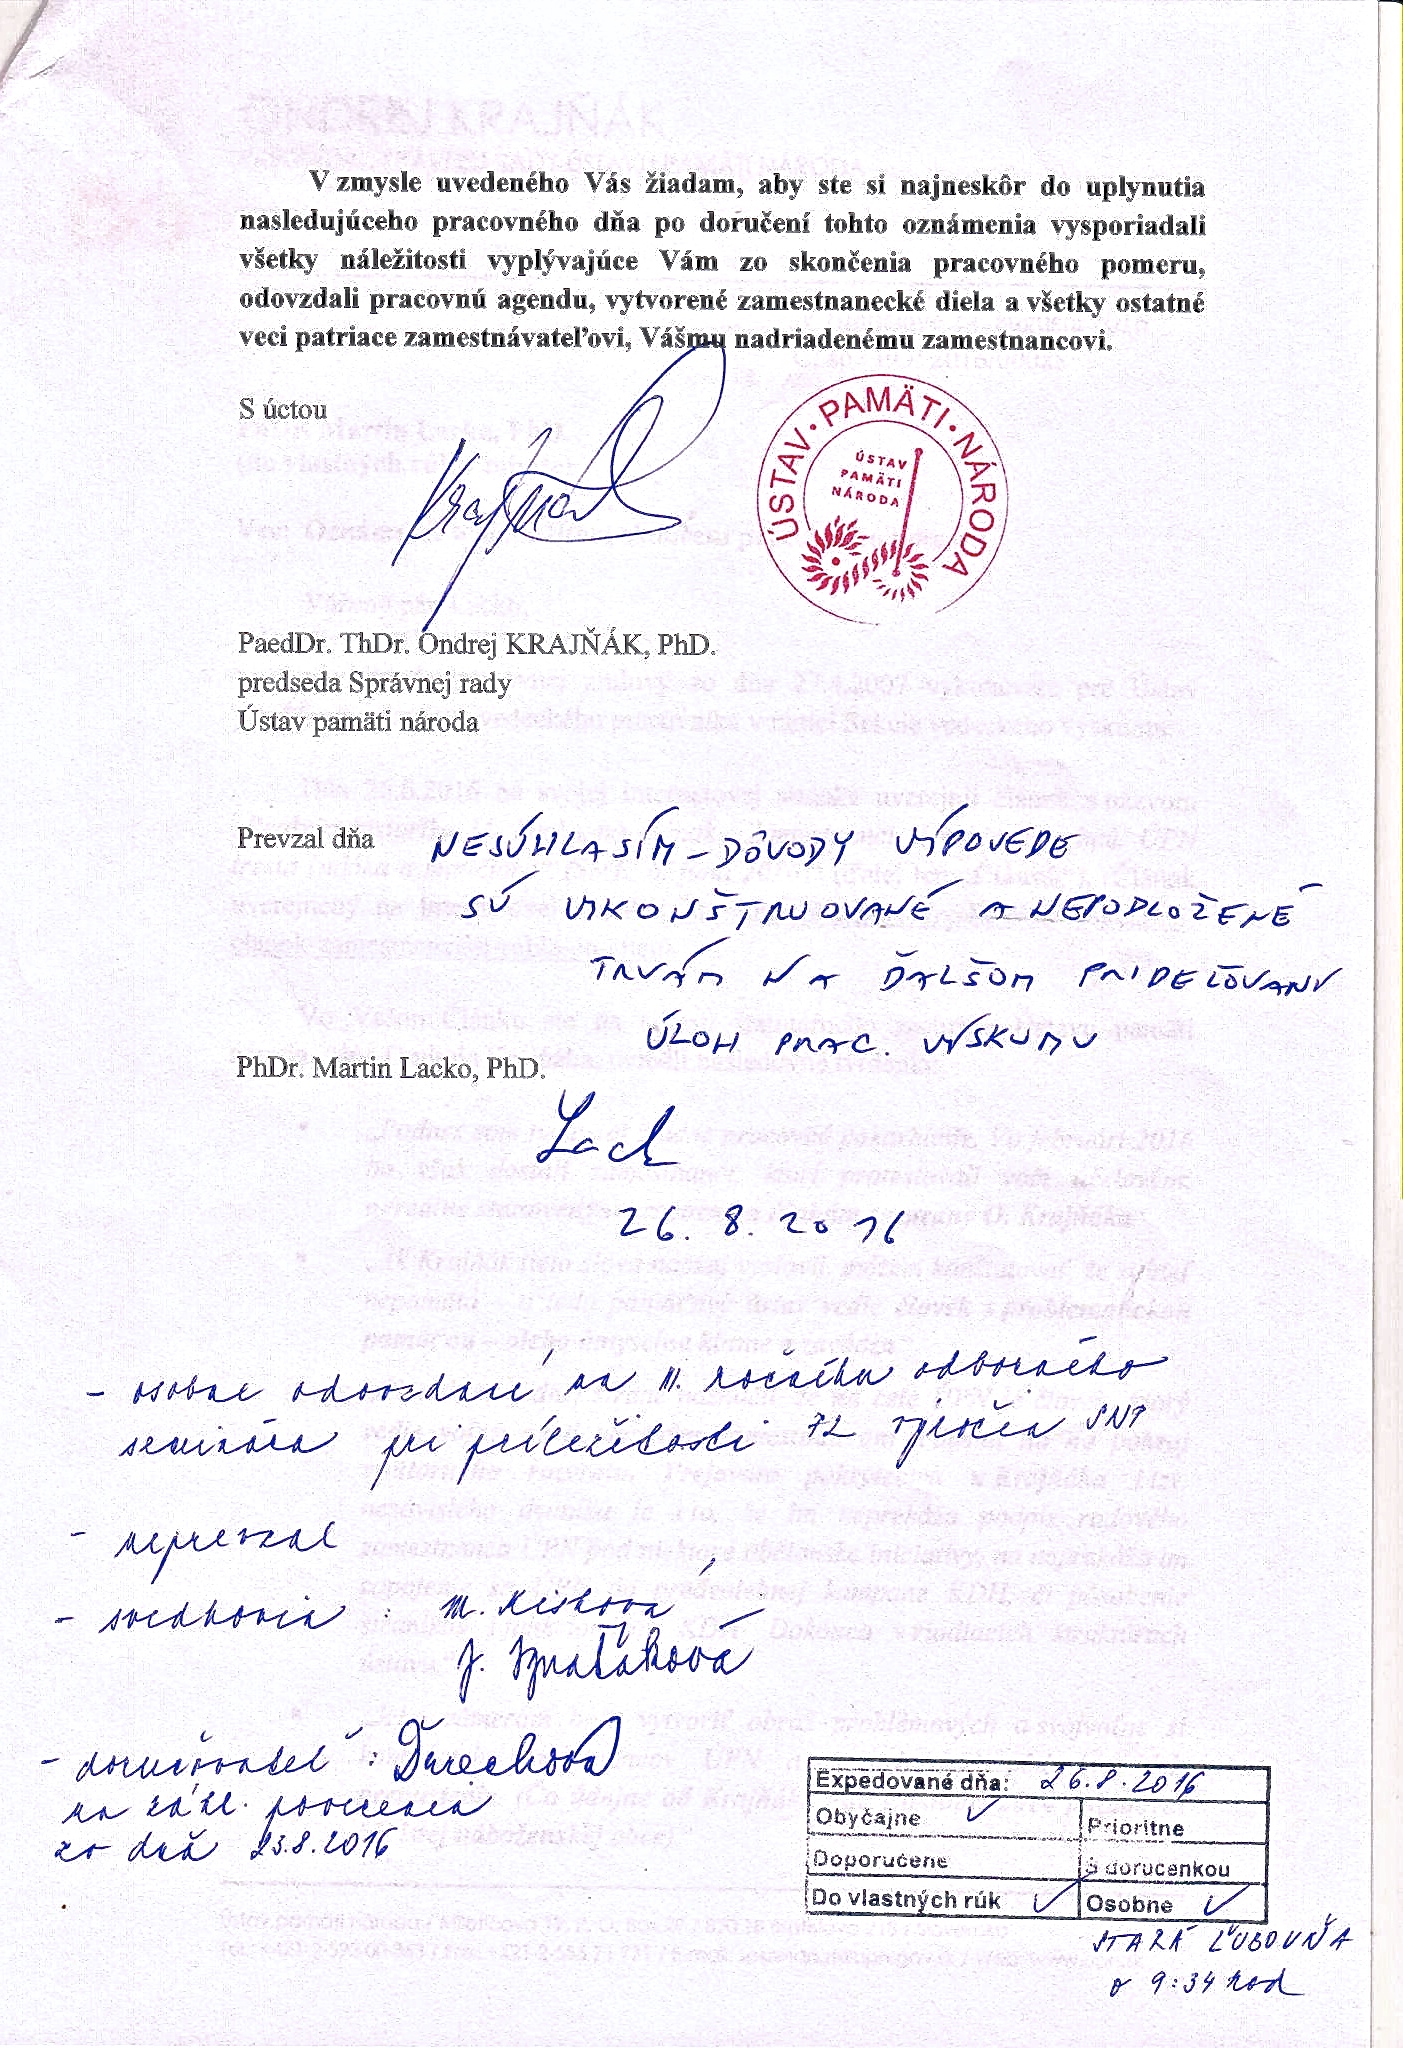 V zmysle uvedeného Vás žiadam, aby ste si najneskôr do uplynutia
nasledujúceho pracovného dňa po doručení tohto oznámenia vysporiadali
všetky náležitosti vyplývajúce Vám zo skončenia pracovného pomeru,
odovzdali pracovnú agendu, vytvorené zamestnanecké diela a všetky ostatné
veci patriace zamestnávateľovi, Vášmu nadriadenému zamestnancovi.
S úctou
ÚSTAV · PAMÄTI · NÁRODA
ÚSTAV
PAMÄTI
NÁRODA
PaedDr. ThDr. Ondrej KRAJŇÁK, PhD.
predseda Správnej rady
Ústav pamäti národa
Prevzal dňa NESÚHLASÍM - DÔVODY VÝPOVEDE
SÚ VYKONŠTRUOVANÉ A NEPODLOŽENÉ
TRVÁM NA ĎALŠOM PRIDEĽOVANÍ
ÚLOH PRAC. VÝSKUMU
PhDr. Martin Lacko, PhD.
Lack
26. 8. 2016
- osobne odovzdané na III. ročníku odborného
seminára pri príležitosti 72 výročia SNP
- neprevzal
- svedkovia : M. Misková
J. Ignaťáková
- doručovateľ : Ďurechová
na zákl. poverenia
zo dňa 23.8.2016
Expedované dňa: 26.8.2016
Obyčajne ✓ Prioritne
Doporučene S doručenkou
Do vlastných rúk ✓ Osobne ✓
STARÁ ĽUBOVŇA
o 9:34 hod